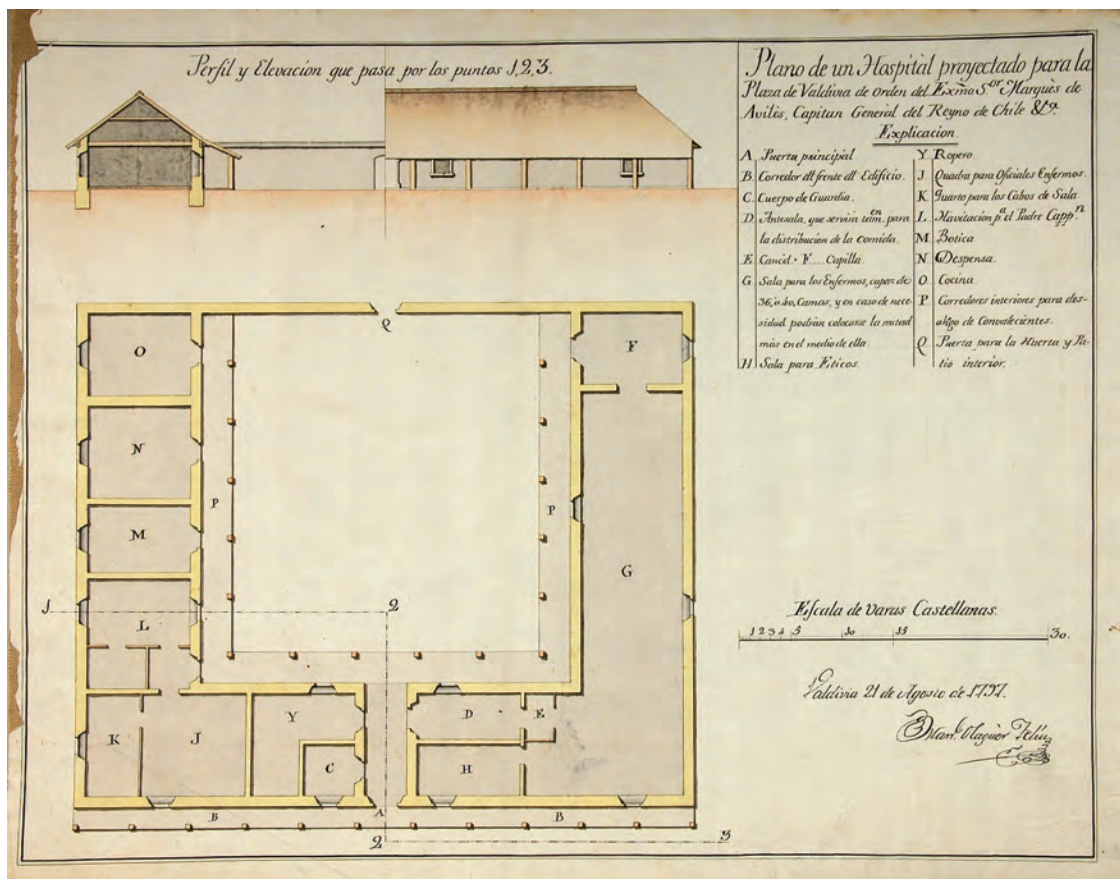 Perfil y Elevacion que pasa por los puntos 1, 2, 3.
Plano de un Hospital proyectado para la
Plaza de Valdivia de orden del Exmo Sor Marquès de
Avilès, Capitan General del Reyno de Chile &a.
Explicacion.
A Puerta principal
B. Corredor all frente all Edificio.
C. Cuerpo de Guardia.
D Antesala, que servira tamen para
la distribucion de la comida.
E Cancel. F Capilla.
G Sala para los Enfermos, capaz de
36, à 40, Camas, y en caso de nece-
sidad podràn colocarse la mitad
mas en el medio de ella.
H Sala para Eticos.
Y Ropero.
J Quadra para Oficiales Enfermos.
K Quarto para los Cabos de Sala.
L Havitacion pa el Padre Cappn
M Botica
N Despensa.
O Cocina.
P Corredores interiores para des-
ahogo de Convalecientes.
Q Puerta para la Huerta y Pa-
tio interior.
Q
O
F
N
P
P
M
G
1
2
L
Y
D
E
K
J
C
H
B
A
B
2
3
Escala de varas Castellanas.
1 2 3 4 5 10 15 30.
Valdivia 21 de Agosto de 1797.
Manl. Olaguer Feliu